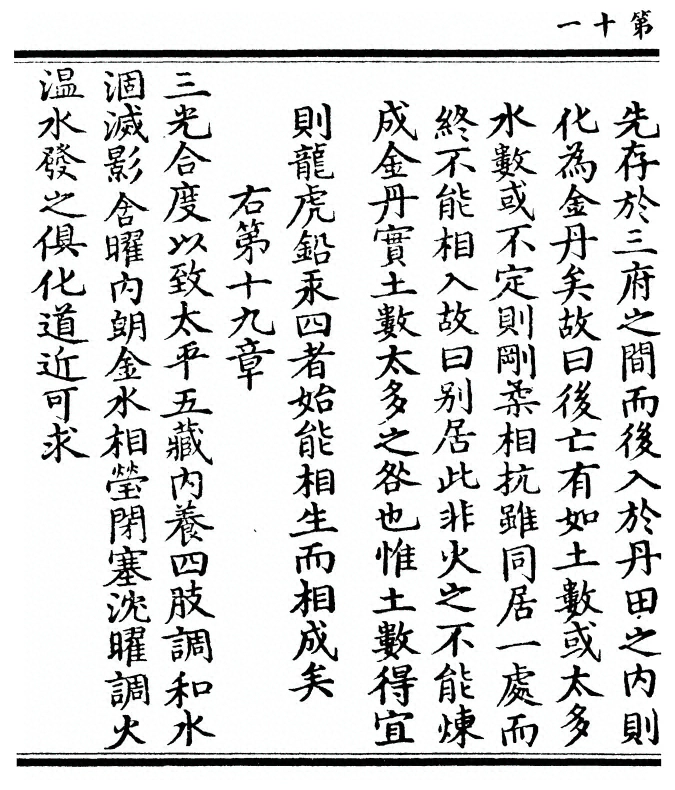 第十一
先存於三府之間而後入於丹田之内則
化為金丹矣故曰後亡有如土數或太多
水數或不定則剛柔相抗雖同居一處而
終不能相入故曰别居此非火之不能煉
成金丹實土數太多之咎也惟土數得宜
則龍虎鉛汞四者始能相生而相成矣
右第十九章
三光合度以致太平五藏内養四肢調和水
涸滅影含曜内朗金水相瑩閉塞沈曜調火
温水發之俱化道近可求